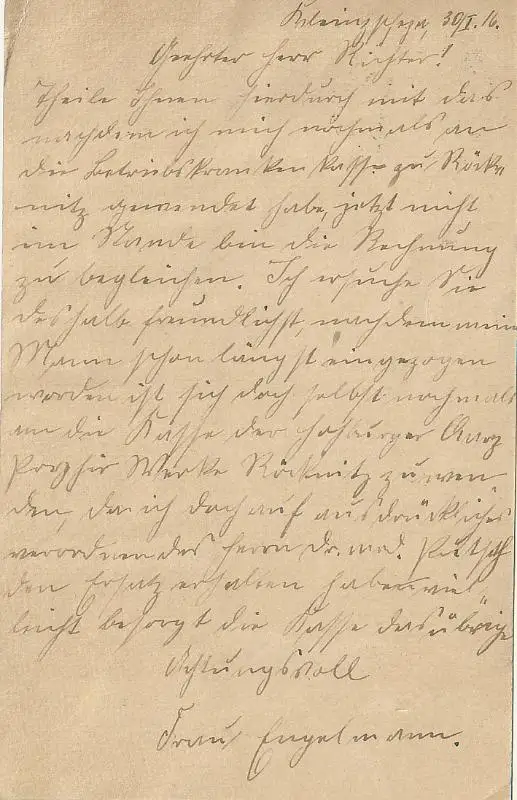 Kleinzschepa, 30/I. 16.
Geehrter Herr Richter!
Theile Ihnen hierdurch mit das
nachdem ich mich nochmals an
die Betriebskrankenkasse zu Röck-
nitz gewendet habe, jetzt nicht
im Stande bin die Rechnung
zu begleichen. Ich ersuche Sie
deshalb freundlichst, nachdem mein
Mann schon längst eingezogen
worden ist sich doch selbst nochmals
an die Kasse der Hohburger
Porphir Werke Röcknitz zu wen
den, da ich doch auf ausdrückliches
verordnen des Herrn Dr. med.
den Ersatz erhalten habe viel-
leicht besorgt die Kasse das übrige
Achtungsvoll
Frau Engelmann.